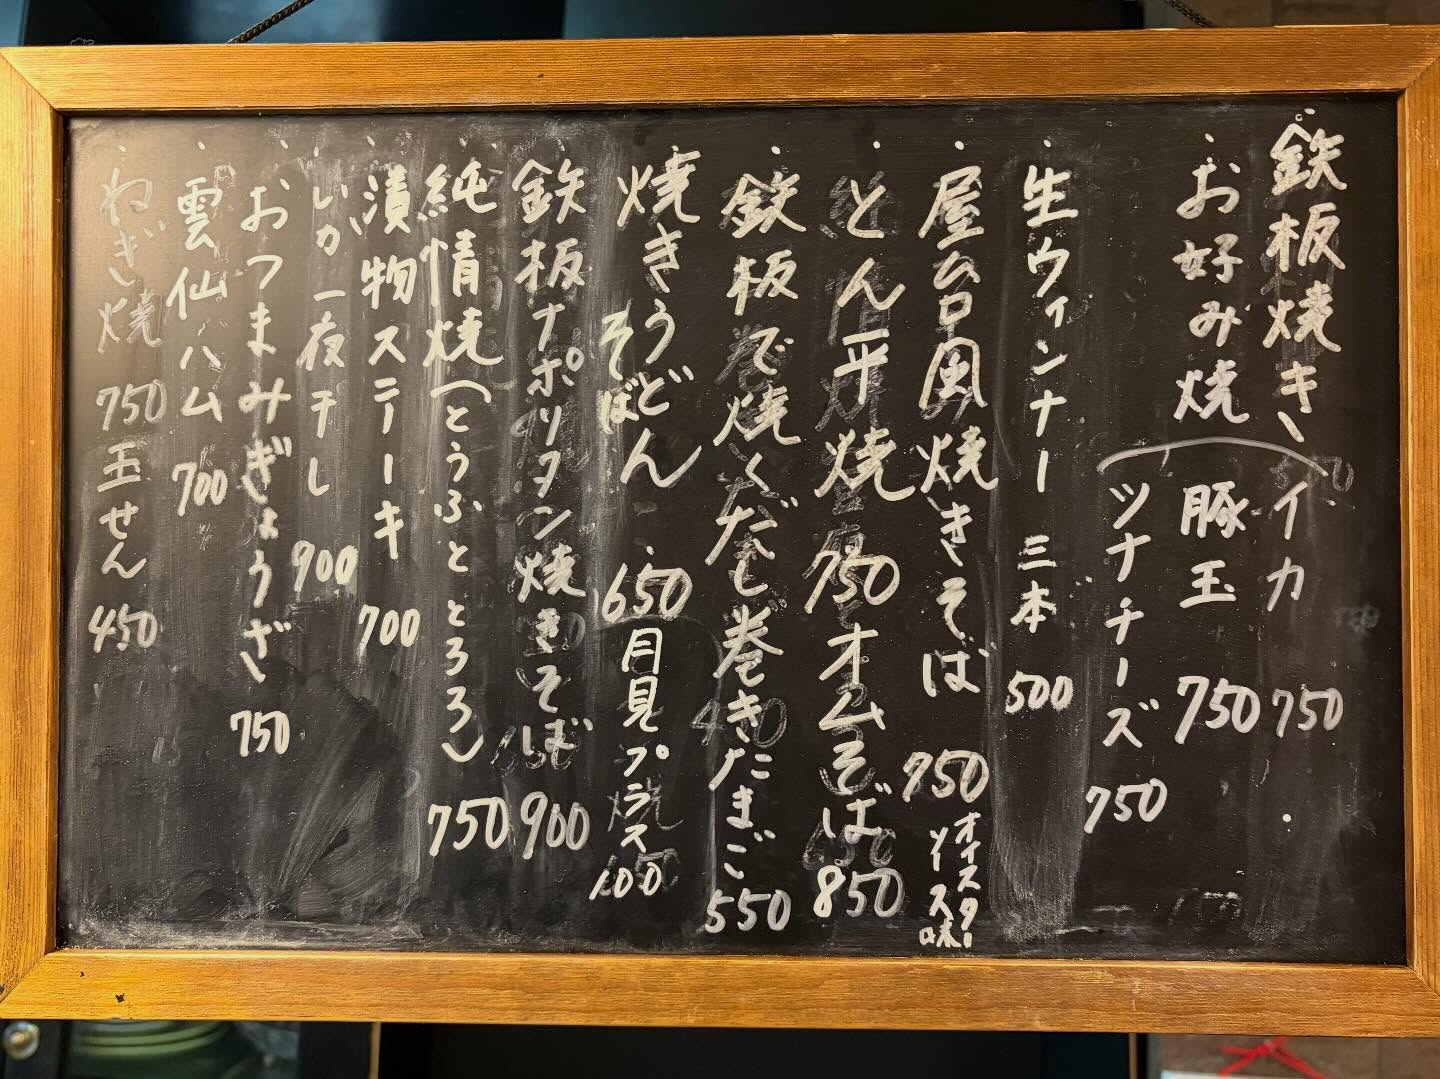 ・鉄板焼き イカ 750
・お好み焼 豚玉 750
ツナチーズ 750
・生ウィンナー 三本 500
・屋ム口風焼きそば 750 オイスターソース味
・とん平焼 750 オムそば 850
・鉄板で焼くだし巻きたまご 550
・焼きうどん そば 650 月見プラス 100
・鉄板ナポリタン焼きそば 900
・純情焼(とうふととろろ) 750
・漬物ステーキ 700
・いか一夜干し 900
・おつまみぎょうざ 750
・雲仙ハム 700
・ねぎ焼 750 玉せん 450